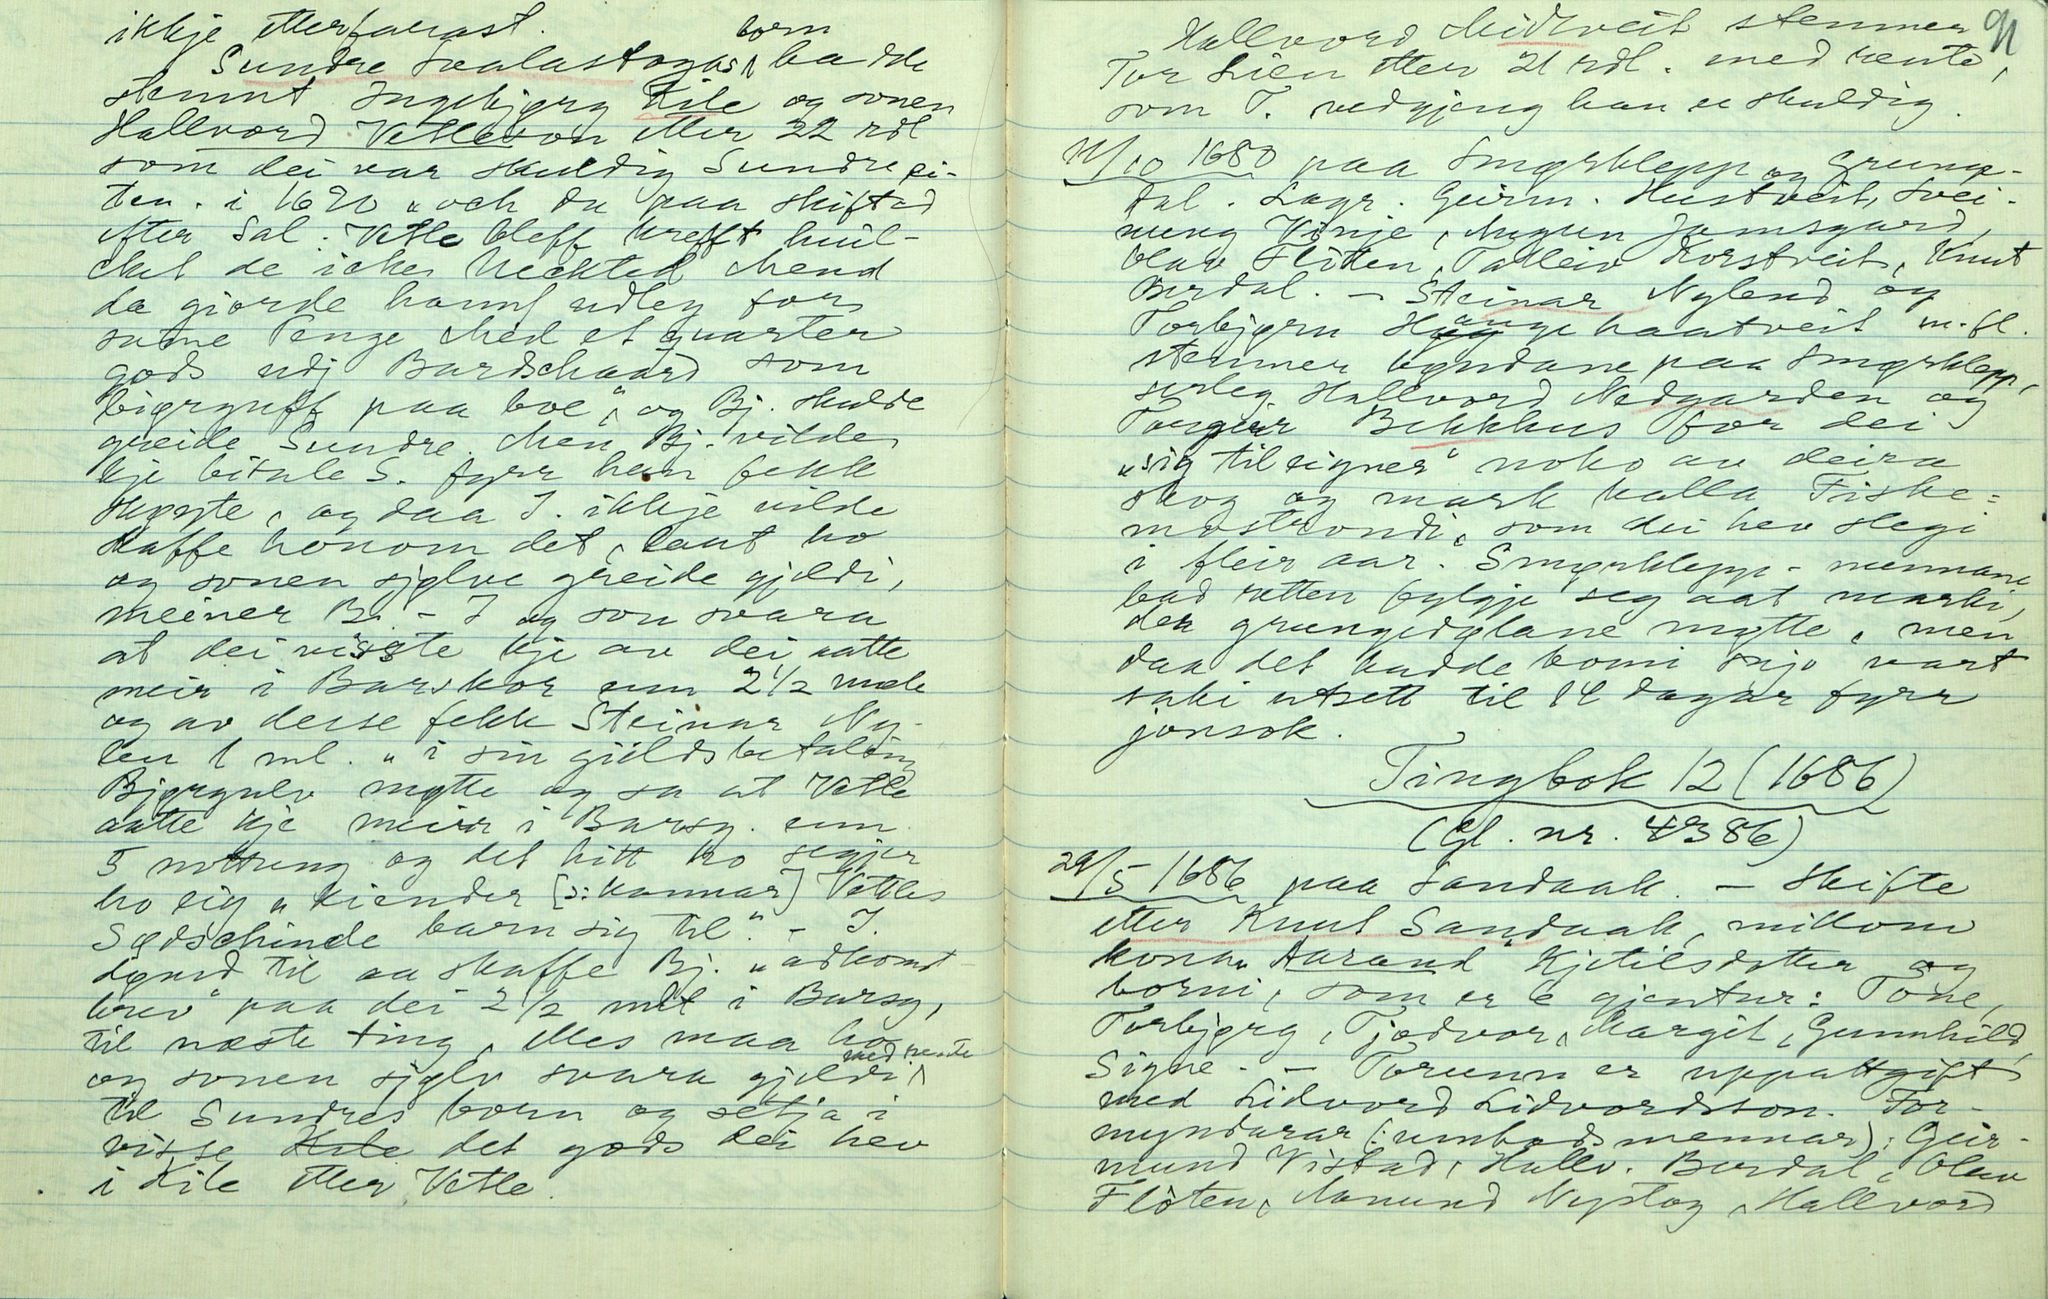 ikkje etterfarast.
Sundre Svalastogas born hadde
stemnt Ingebjørg Kile og sonen
Hallvord Vetleson etter 22 rdl
som dei var skuldig Sundre si-
den i 1670 "och da paa skiftad
efter Sal: Vetle bleff kreft huil-
chet de icke necktad Mend
da giorde hannß udleg for
same Penge Med et quarter
gods udj Bardschaard som
biørguff paa boe", og Bj. skulde
greide Sundre. Men Bj. vilde
kje bitale S. fyrr han fekk
skøyte, og daa I. ikkje vilde
skaffe honom det, laut ho
og sonen sjølve greide gjeldi,
meiner Bj. - I og son svara
at dei visste kje av dei aatte
meir i Barskor enn 2 1/2 mæle
og av desse fekk Steinar Ny-
len 1 ml. "i sin gieldsbetaling
Bjørgulv møtte og sa at Vetle
aatte kje meir i Barsg. enn
5 nottreng og det hitt ho segjer
ho sig "kiender [ɔ: kannar] Vetles
Sødschinde barn sig til." - I.
dømd til aa skaffe Bj. "adkomst-
brev" paa dei 2 1/2 mæl i Barsg,
til næste ting, elles maa ho
og sonen sjølv svara gjeldi med rente
til Sundres born og setja i
visse Kile det gods dei hev
i Kile etter Vetle.
91
Hallvord Midtveit stemner
Tor Lien etter 21 rdl. med rente,
som T. vedgjeng han er skuldig.
11/10 1680 paa Smørklepp og Grunge-
dal. Lagr. Geirm. Hustveit, Svei-
nung Vinje, Augun Jamsgard,
Olav Flöten, Talleiv Korstveit, Knut
Berdal. - Steinar Nylend og
Torbjørn Haugehaatveit m. fl.
stemner bøndane paa Smørklepp,
serleg Hallvord Nedgarden og
Torgeir Bekkhus for dei
"sig tileigner" noko av deira
skog og mark kalla Fiske-
møstrondi, som dei hev slegi
i fleir aar. Smørklepp-mennane
bad retten fylgje seg aat marki,
der grungedølane møtte, men
daa det hadde komi snjo vart
saki utsett til 14 dagar fyrr
jonsok.
Tingbok 12 (1686)
(Gl. nr. 4386)
29/5 1686 paa Sandaak. - Skifte
etter Knut Sandaak, millom
kona Aarand Kjetilsdotter og
borni, som er 6 gjentur: Tone,
Torbjørg, Tjodvor, Margit, Gunnhild,
Signe. - Torunn er uppattgift
med Lidvord Lidvordsson. For-
myndarar (: umbodsmennar): Geir-
mund Vistad, Hallv. Berdal, Olav
Flöten, Aamund Nystog, Hallvord